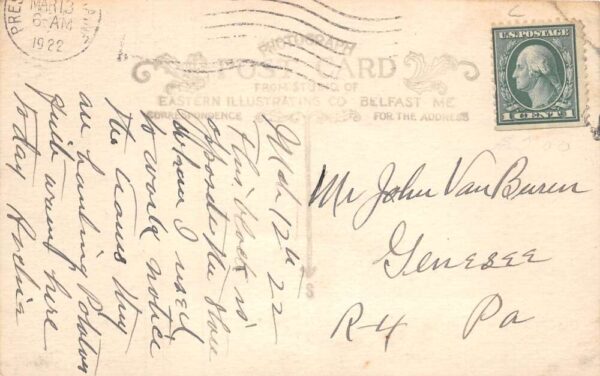 PRES
MAR 13
6 AM
1922
PHOTOGRAPH
POST CARD
FROM STUDIO OF
EASTERN ILLUSTRATING CO. BELFAST ME.
CORRESPONDENCE
FOR THE ADDRESS
U.S. POSTAGE
1 CENT 1
Mch 12th 22
This block is
opposite the store
where I used
to work notice
the teams they
are hauling Potatoes
quite warm here
today
Mr John Van Buren
Genesee
R-4 Pa